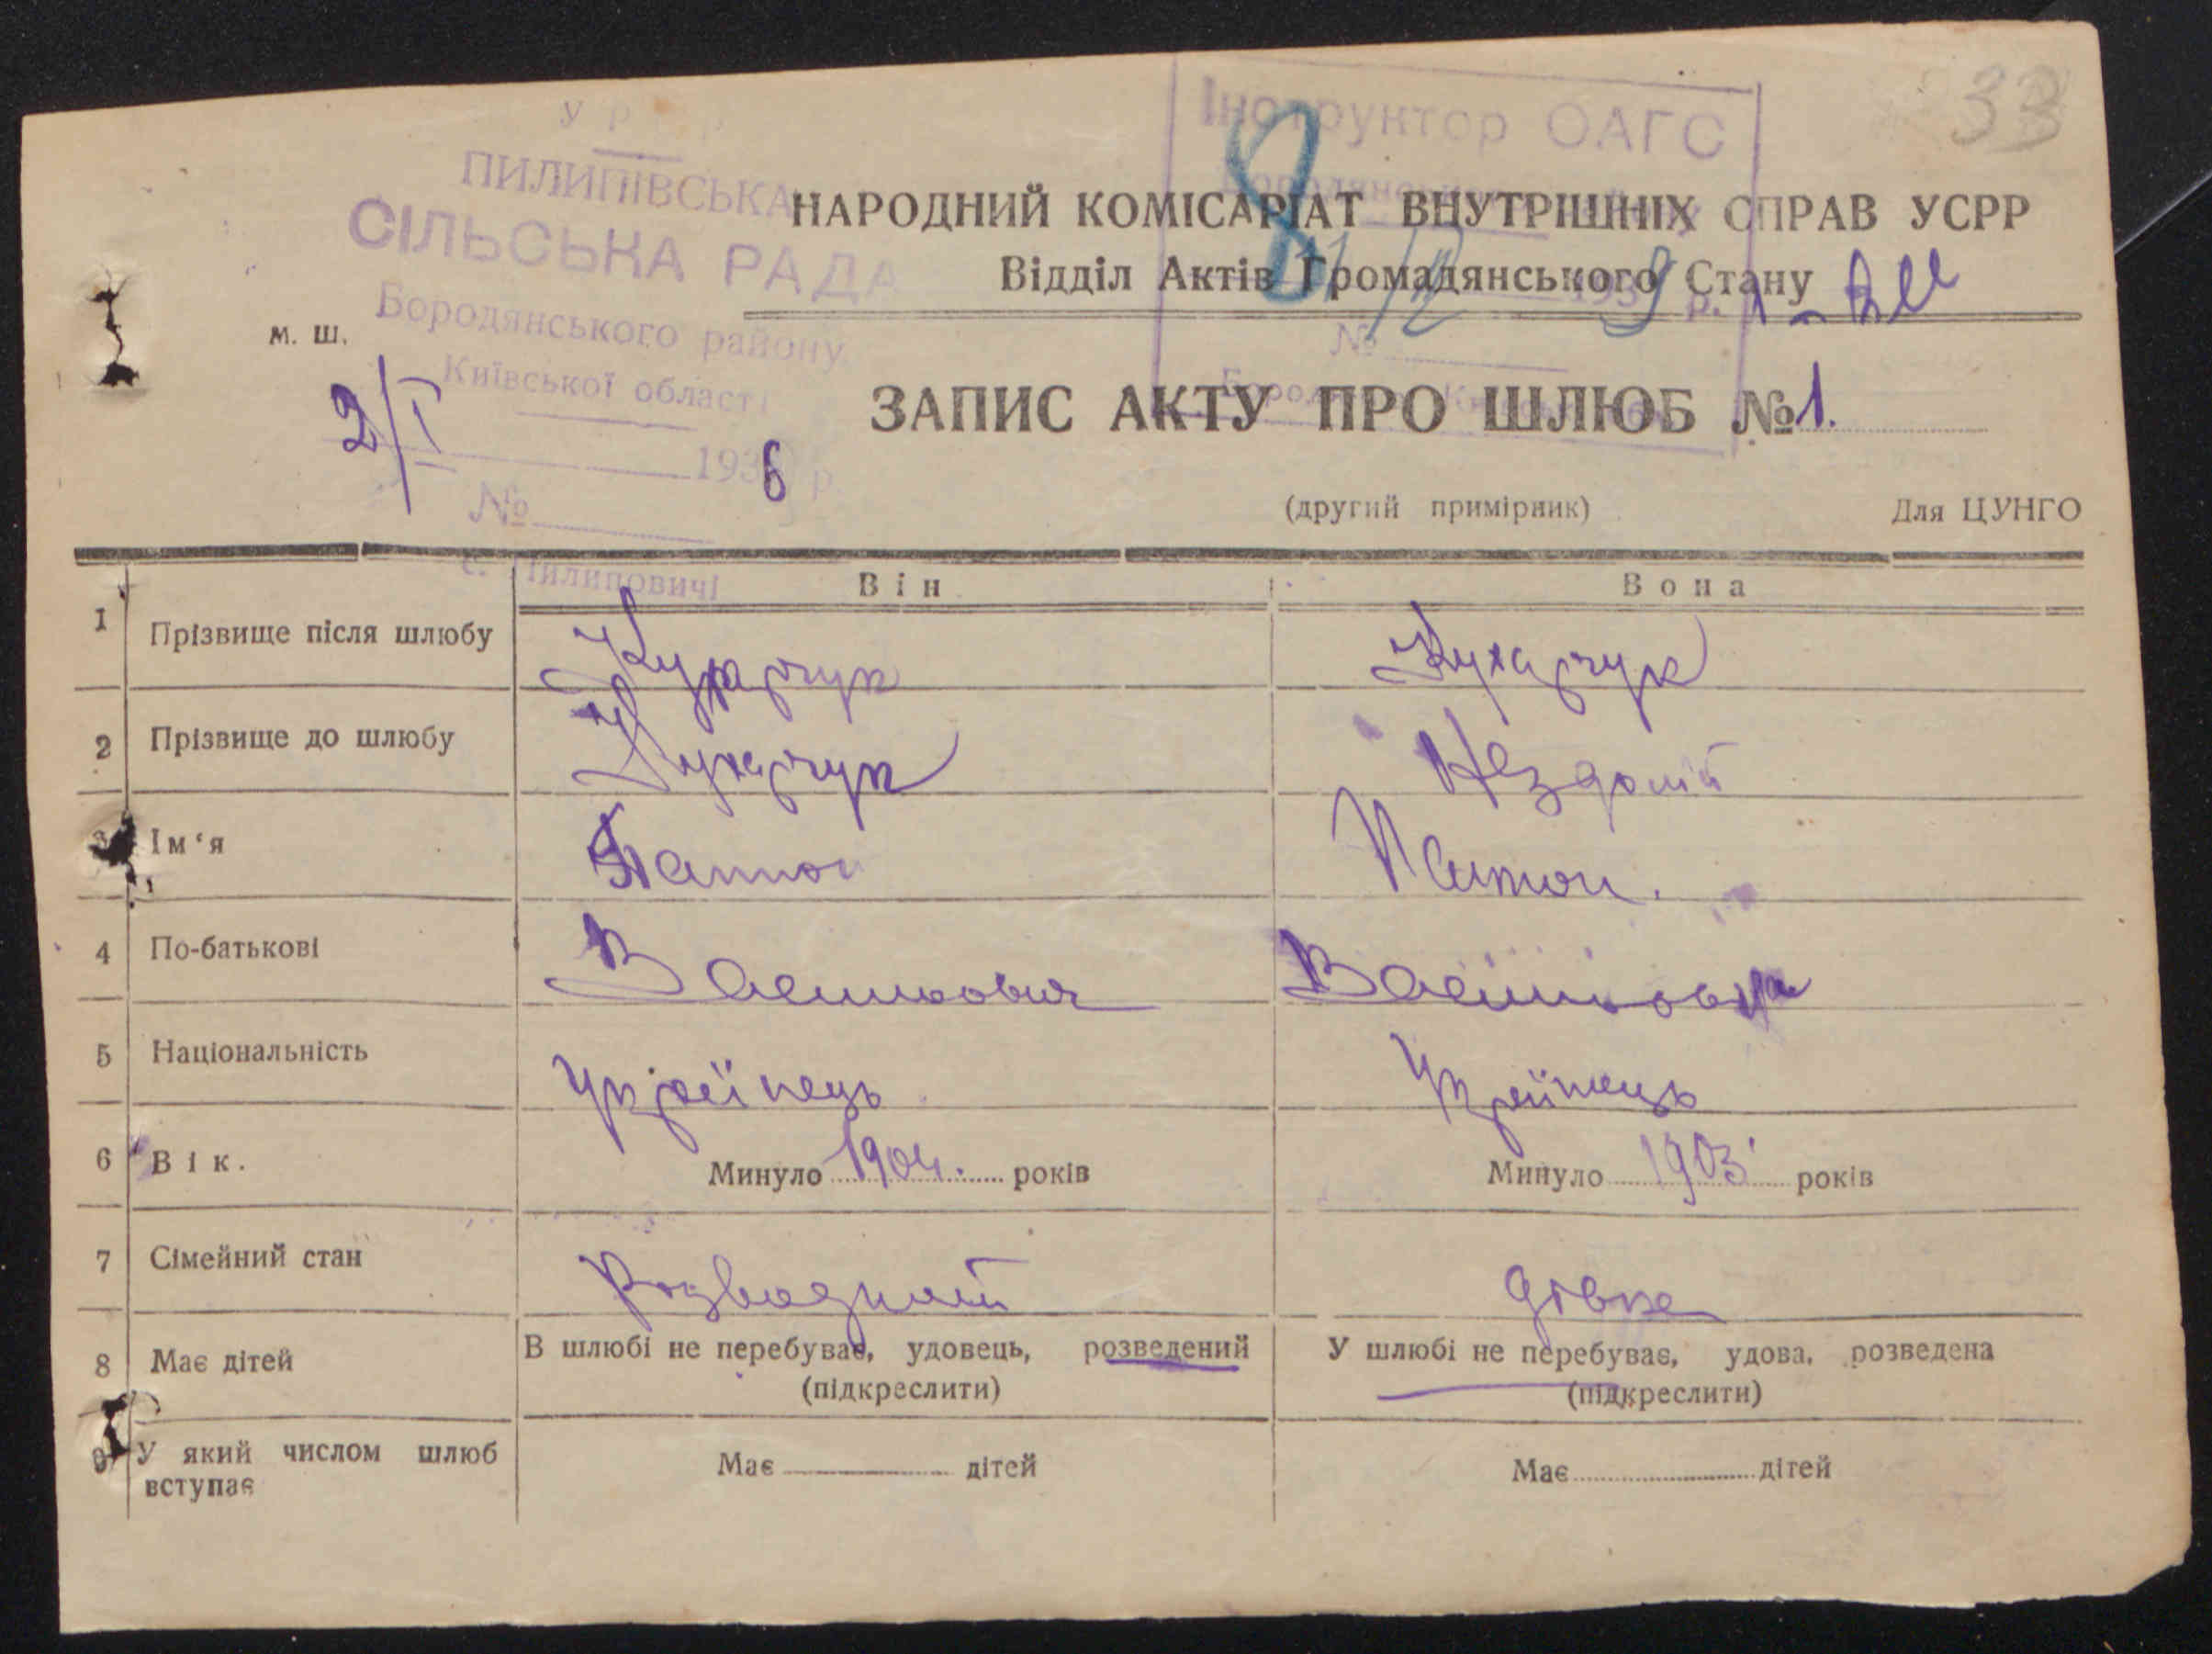 33
У Р Р
ПИЛИПІВСЬКА
СІЛЬСЬКА РАДА
Бородянського району
Київської області
2/I 1936 р.
№
с. Пилиповичі
Інструктор ОАГС
8
№
НАРОДНИЙ КОМІСАРІАТ ВНУТРІШНІХ СПРАВ УСРР
Відділ Актів Громадянського Стану
м. ш.
ЗАПИС АКТУ ПРО ШЛЮБ № 1.
(другий примірник) Для ЦУНГО
Він Вона
1 Прізвище після шлюбу Кухарчук Кухарчук
2 Прізвище до шлюбу Кухарчук Нездолій
3 Ім‘я
4 По-батькові Васильович Васильовна
5 Національність Українець Українець
6 Вік. Минуло 1904. років Минуло 1903 років
7 Сімейний стан дівка
8 Має дітей В шлюбі не перебуває, удовець, розведений У шлюбі не перебуває, удова, розведена
(підкреслити) (підкреслити)
9 У який числом шлюб вступає Має дітей Має дітей